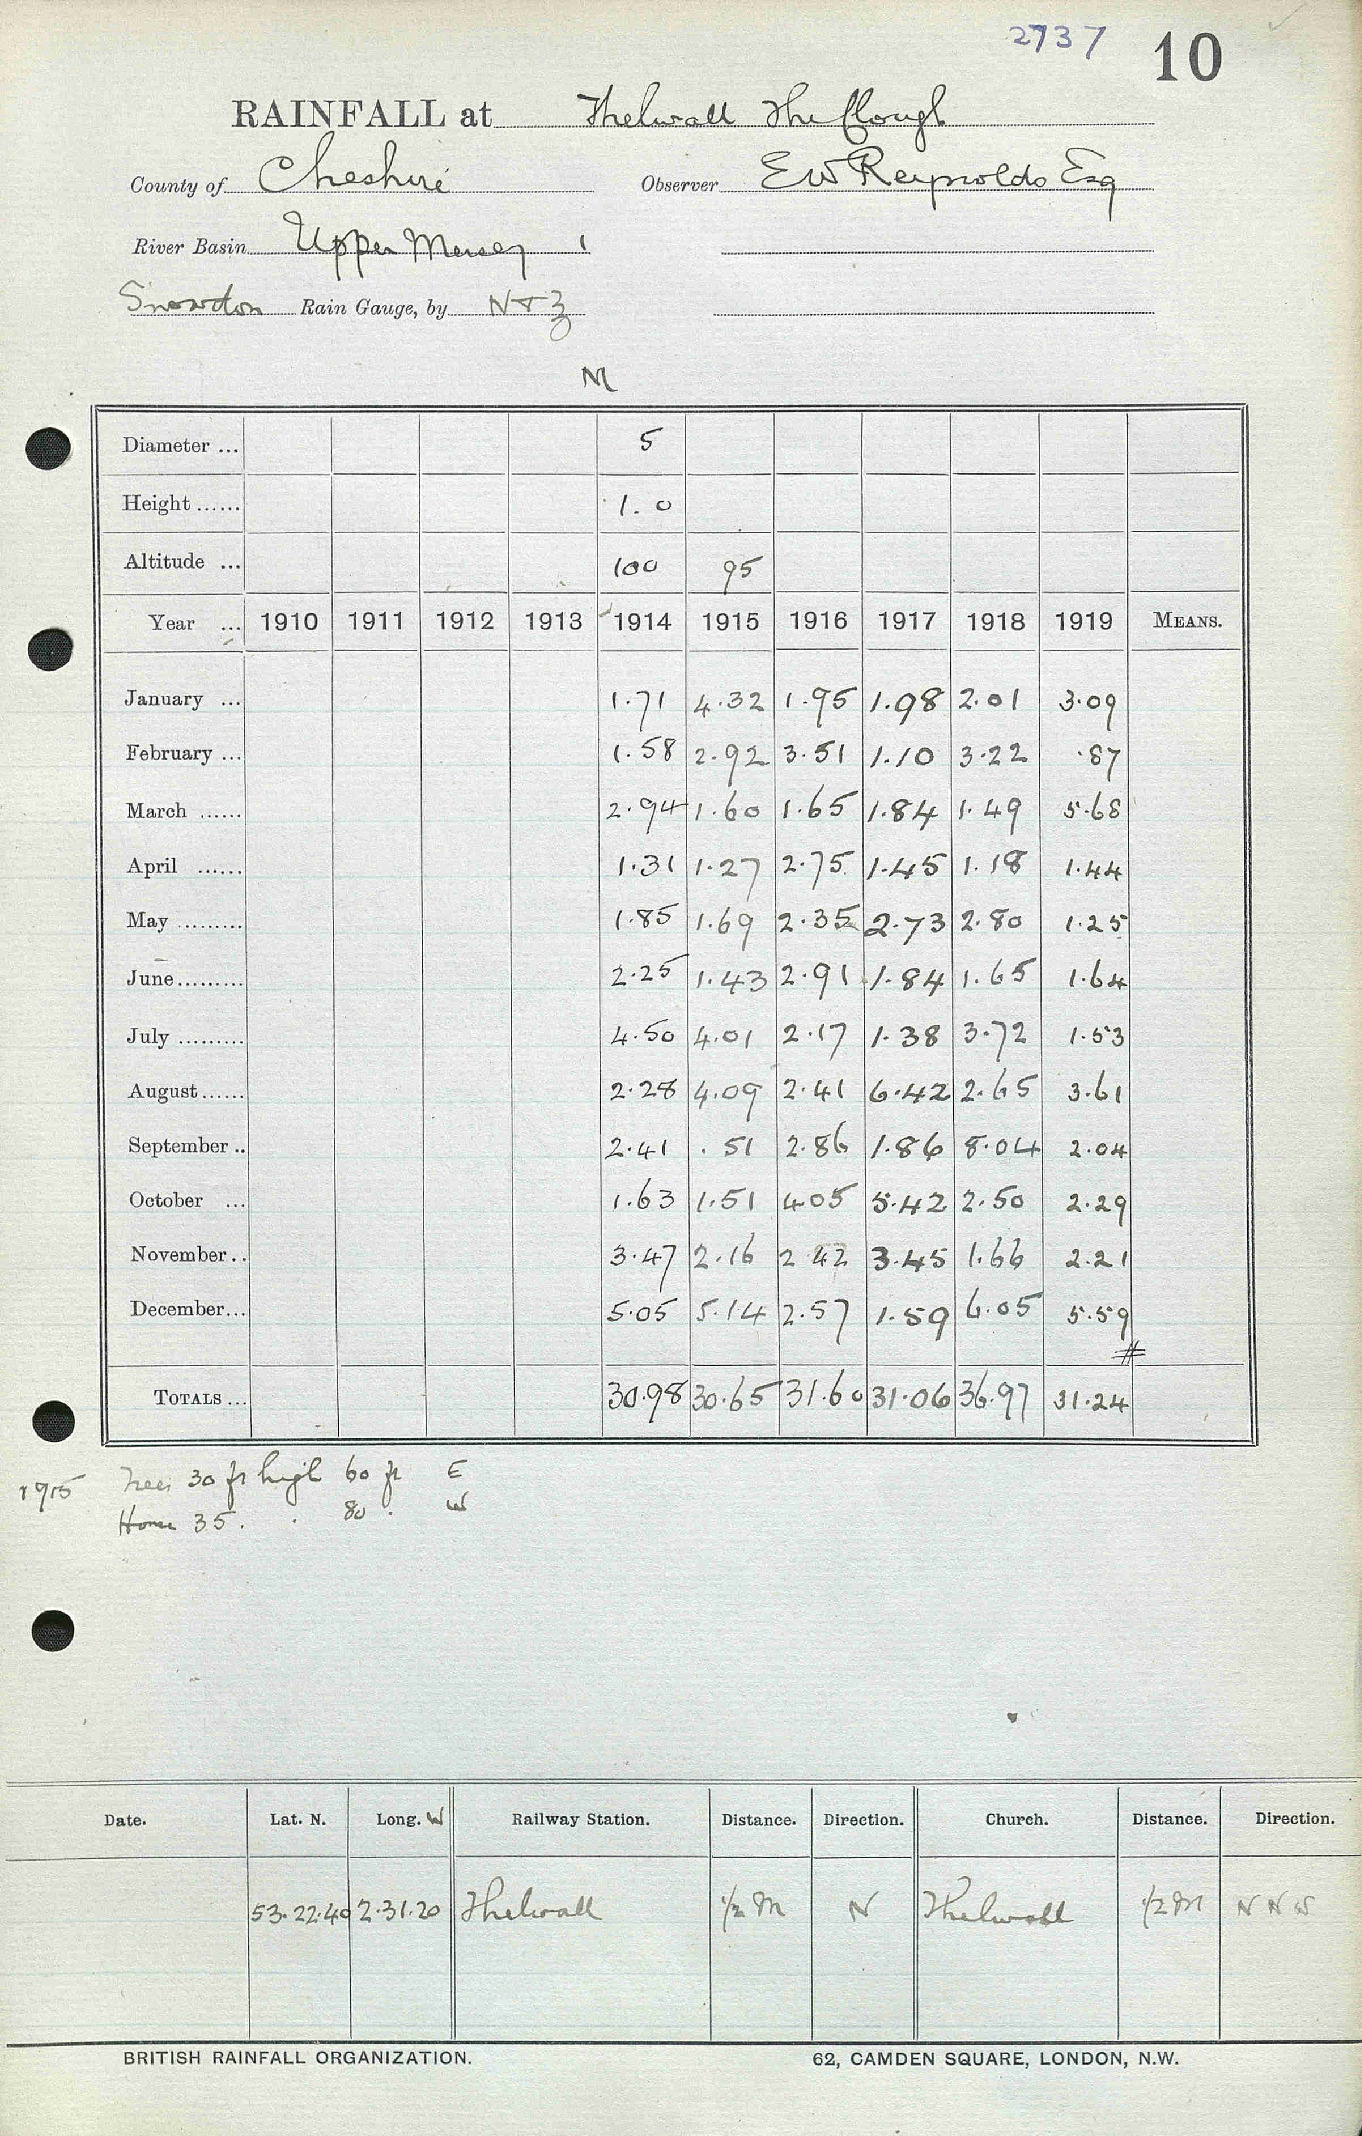 2737 10
RAINFALL at Thelwall The Clough
County of Cheshire Observer E W Reynolds Esq
River Basin Upper Mersey 1
Snowdon Rain Gauge, by N & Z
M
Diameter ... 5
Height ...... 1.0
Altitude ... 100 95
Year ... 1910 1911 1912 1913 1914 1915 1916 1917 1918 1919 MEANS.
January ... 1.71 4.32 1.95 1.98 2.01 3.09
February ... 1.58 2.92 3.51 1.10 3.22 .87
March ...... 2.94 1.60 1.65 1.84 1.49 5.68
April ...... 1.31 1.27 2.75 1.45 1.18 1.44
May ......... 1.85 1.69 2.35 2.73 2.80 1.25
June ......... 2.25 1.43 2.91 1.84 1.65 1.64
July ......... 4.50 4.01 2.17 1.38 3.72 1.53
August ...... 2.28 4.09 2.41 6.42 2.65 3.61
September .. 2.41 .51 2.86 1.86 8.04 2.04
October ... 1.63 1.51 4 05 5.42 2.50 2.29
November .. 3.47 2.16 2 42 3.45 1.66 2.21
December ... 5.05 5.14 2.57 1.59 6.05 5.59
#
TOTALS ... 30.98 30.65 31.60 31.06 36.97 31.24
1915 Trees 30 ft high 60 ft E
House 35 . . 80 . W
Date. Lat. N. Long. W Railway Station. Distance. Direction. Church. Distance. Direction.
53.22.40 2.31.20 Thelwall 1/2 M N Thelwall 1/2 M N N W
BRITISH RAINFALL ORGANIZATION. 62, CAMDEN SQUARE, LONDON, N.W.